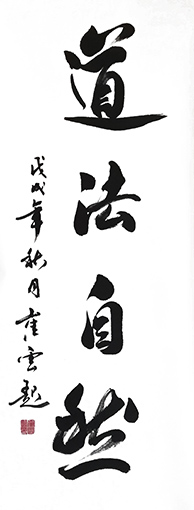 道法自然
戊戌年秋月崔雲起